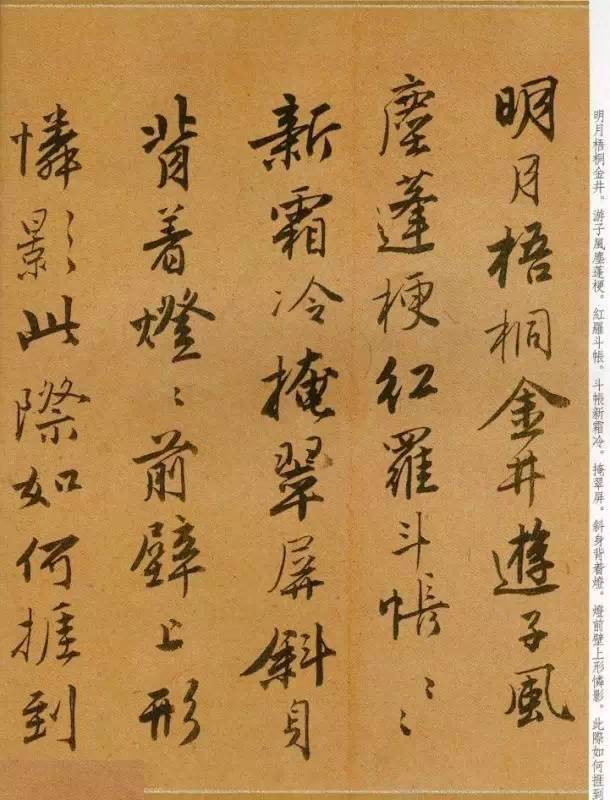 明月梧桐金井。游子風塵蓬梗。紅羅斗帳。斗帳新霜冷。掩翠屏。斜身背着燈。燈前壁上形憐影。此際如何捱到
明月梧桐金井遊子風
塵蓬梗紅羅斗帳〻〻
新霜冷掩翠屏斜身
背着燈〻前壁上形
憐影此際如何捱到